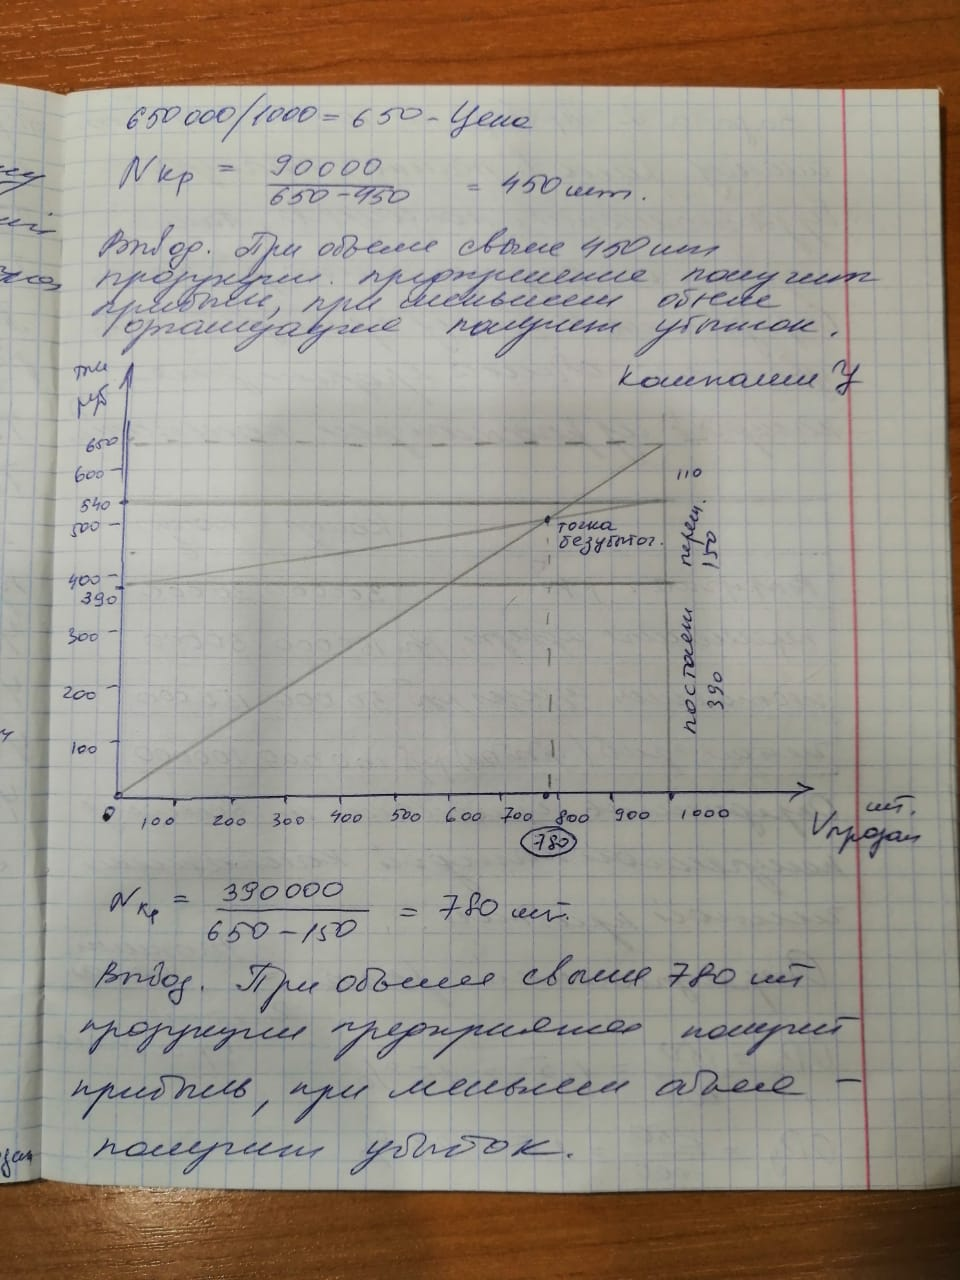 650 000/1000 = 650 - Цена
Nкр = 90000 / 650 - 450 = 450 шт.
Вывод. При объеме свыше 450 шт
продукции предприятие получит
прибыль, при меньшем объеме
организация получит убыток.
Компании У
руб
650
600
540
500
400
390
300
200
100
110
точка
безубыточ.
перем.
150
постоян
390
0
100 200 300 400 500 600 700 800 900 1000
780
шт.
Vпродаж
Nкр = 390000 / 650 - 150 = 780 шт.
Вывод. При объеме свыше 780 шт
продукции предприятие получит
прибыль, при меньшем объеме -
получит убыток.